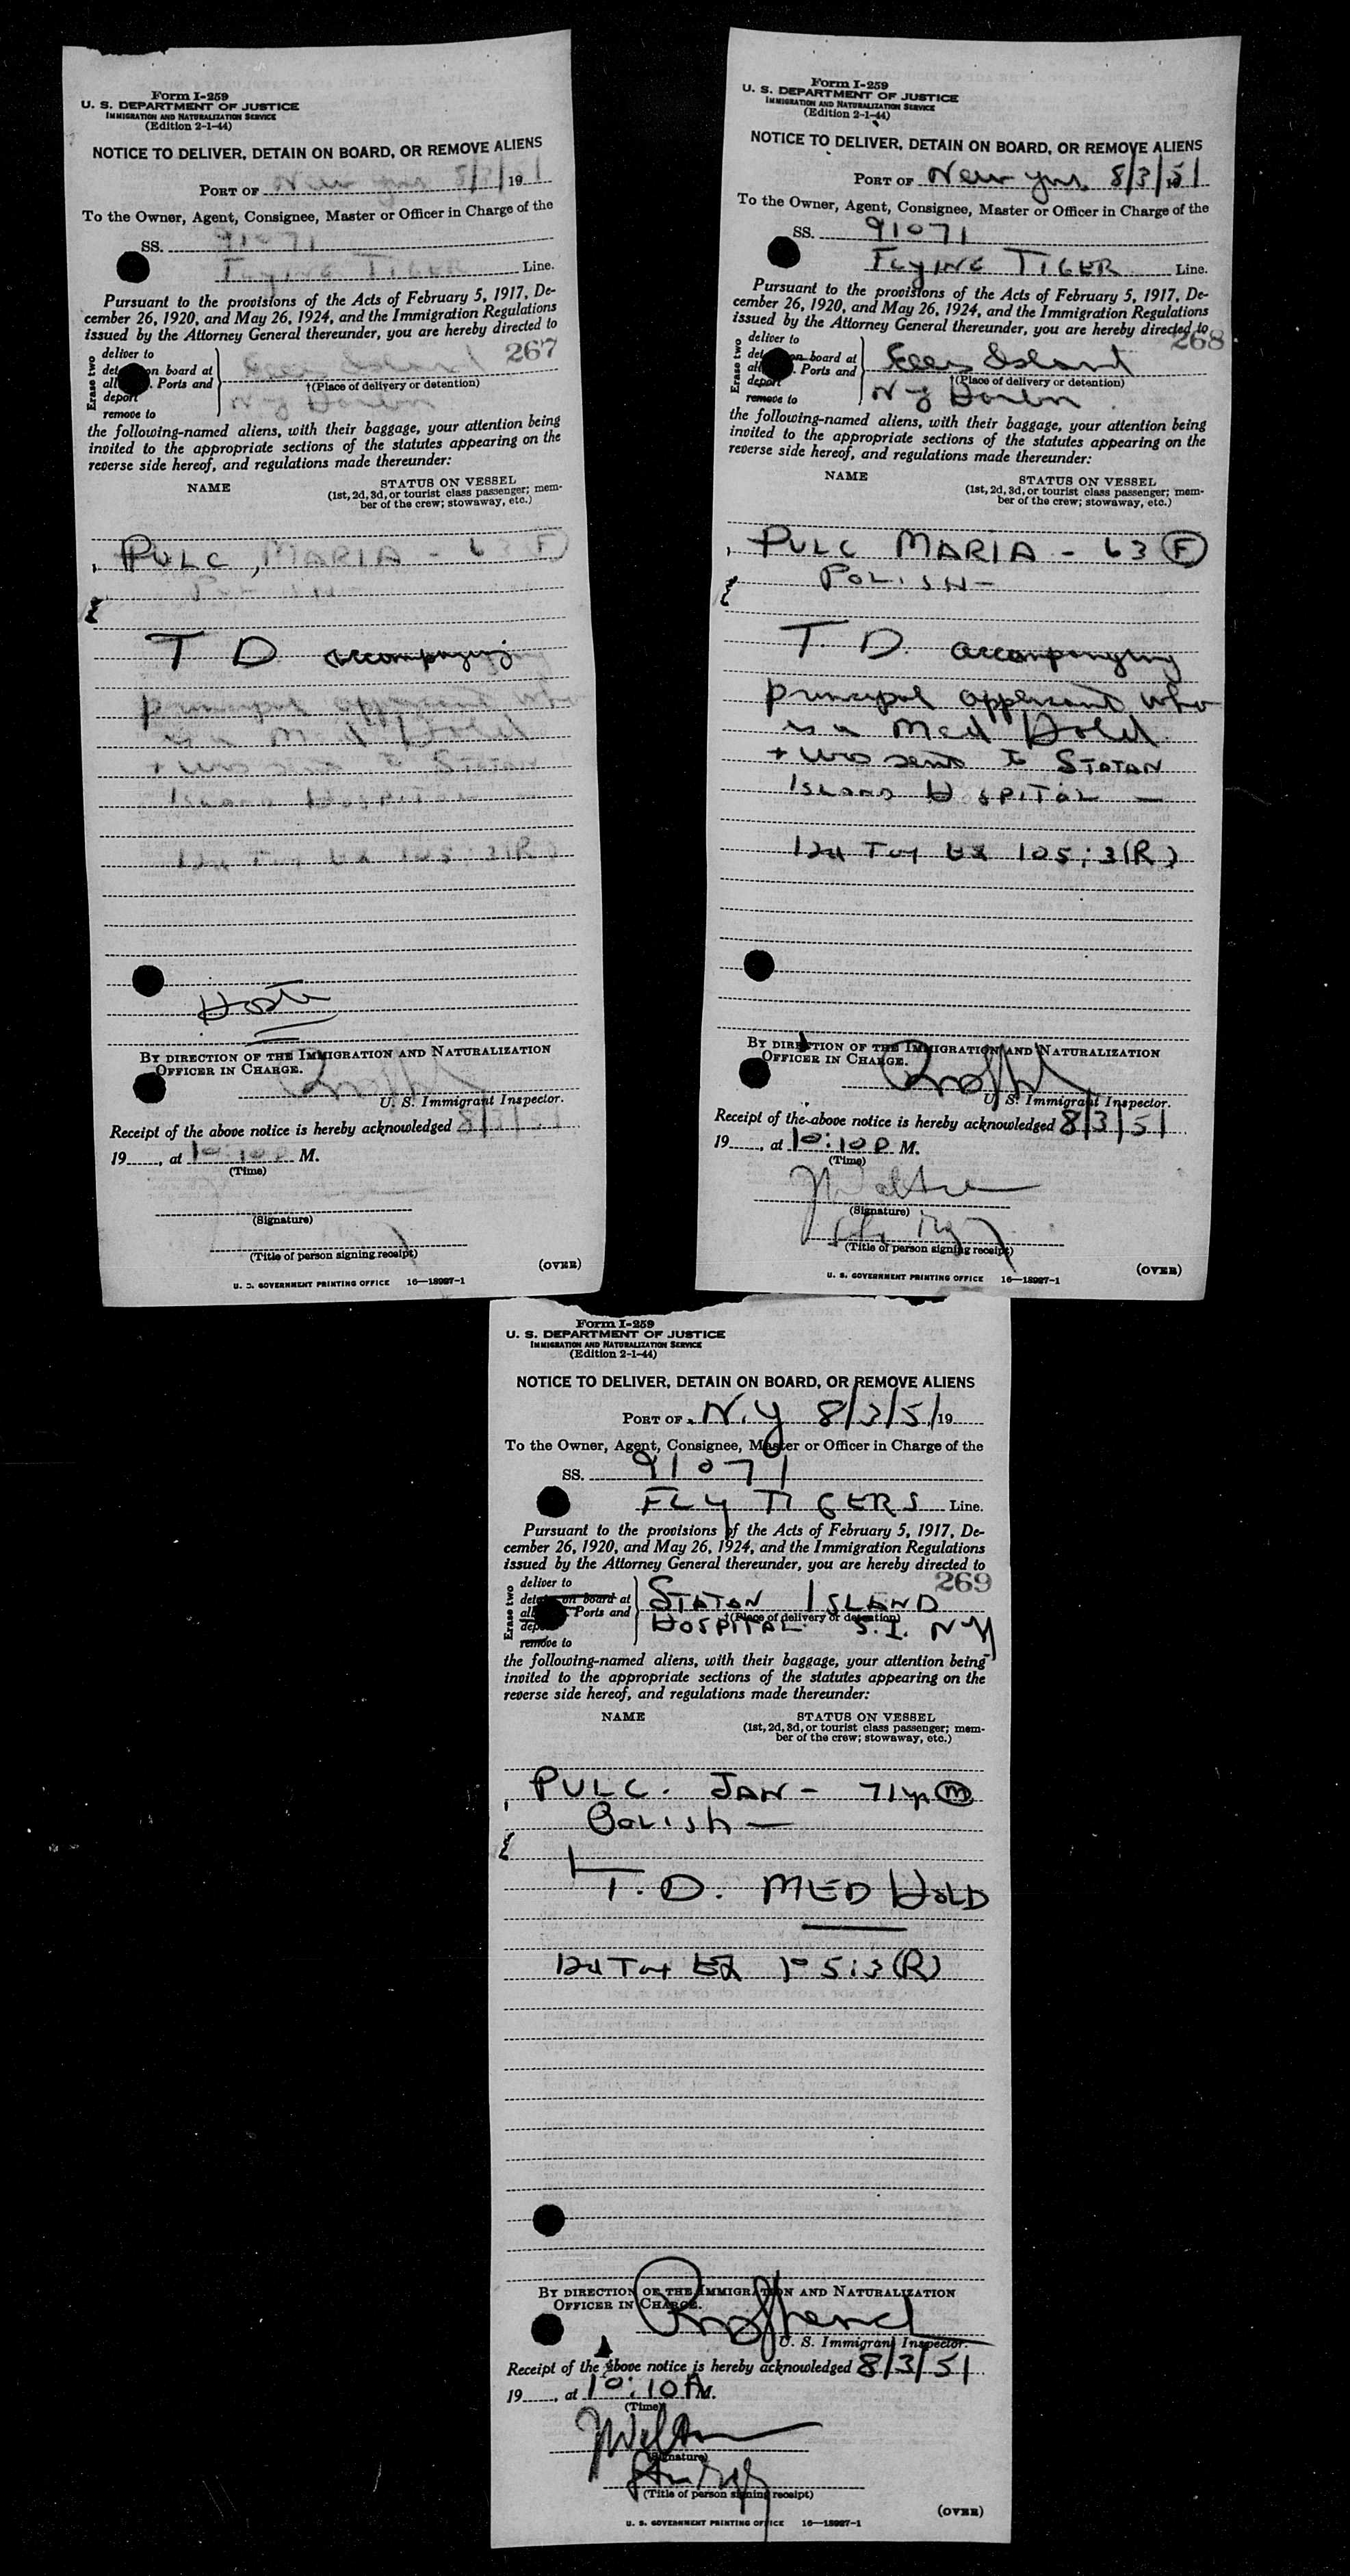 Form I-259
U. S. DEPARTMENT OF JUSTICE
IMMIGRATION AND NATURALIZATION SERVICE
(Edition 2-1-44)
NOTICE TO DELIVER, DETAIN ON BOARD, OR REMOVE ALIENS
PORT OF New 8/3/ 19 1
To the Owner, Agent, Consignee, Master or Officer in Charge of the
SS. 91071
FLYING TIGER Line.
Pursuant to the provisions of the Acts of February 5, 1917, De-
cember 26, 1920, and May 26, 1924, and the Immigration Regulations
issued by the Attorney General thereunder, you are hereby directed to
267
Erase two
deliver to
on board at
Ports and
deport
remove to
Ellis Island
†(Place of delivery or detention)
NY Harbor
the following-named aliens, with their baggage, your attention being
invited to the appropriate sections of the statutes appearing on the
reverse side hereof, and regulations made thereunder:
NAME STATUS ON VESSEL
(1st, 2d, 3d, or tourist class passenger; mem-
ber of the crew; stowaway, etc.)
PULC, MARIA - 63 (F)
POLISH
T D accompanying
principal applicant who
is a Med Hold
+ was sent to STATAN
ISLAND HOSPITAL
105:3(R)
BY DIRECTION OF THE IMMIGRATION AND NATURALIZATION
OFFICER IN CHARGE.
U. S. Immigrant Inspector.
Receipt of the above notice is hereby acknowledged 8/3/51
19___, at 10:10 P M.
(Time)
(Signature)
(Title of person signing receipt)
(OVER)
U. S. GOVERNMENT PRINTING OFFICE 16—18987-1
Form I-259
U. S. DEPARTMENT OF JUSTICE
IMMIGRATION AND NATURALIZATION SERVICE
(Edition 2-1-44)
NOTICE TO DELIVER, DETAIN ON BOARD, OR REMOVE ALIENS
PORT OF New 8/3/51
To the Owner, Agent, Consignee, Master or Officer in Charge of the
SS. 91071
FLYING TIGER Line.
Pursuant to the provisions of the Acts of February 5, 1917, De-
cember 26, 1920, and May 26, 1924, and the Immigration Regulations
issued by the Attorney General thereunder, you are hereby directed to
268
Erase two
deliver to
on board at
Ports and
deport
remove to
Ellis Island
†(Place of delivery or detention)
NY Harbor
the following-named aliens, with their baggage, your attention being
invited to the appropriate sections of the statutes appearing on the
reverse side hereof, and regulations made thereunder:
NAME STATUS ON VESSEL
(1st, 2d, 3d, or tourist class passenger; mem-
ber of the crew; stowaway, etc.)
PULC MARIA - 63 (F)
POLISH -
T. D. accompanying
principal applicant who
is a Med Hold.
+ was sent to STATAN
ISLAND HOSPITAL —
105:3(R)
BY DIRECTION OF THE IMMIGRATION AND NATURALIZATION
OFFICER IN CHARGE.
U. S. Immigrant Inspector.
Receipt of the above notice is hereby acknowledged 8/3/51
19___, at 10:10 P M.
(Time)
(Signature)
(Title of person signing receipt)
(OVER)
U. S. GOVERNMENT PRINTING OFFICE 16—18987-1
Form I-259
U. S. DEPARTMENT OF JUSTICE
IMMIGRATION AND NATURALIZATION SERVICE
(Edition 2-1-44)
NOTICE TO DELIVER, DETAIN ON BOARD, OR REMOVE ALIENS
PORT OF N.Y 8/3/51 19
To the Owner, Agent, Consignee, Master or Officer in Charge of the
SS. 91071
FLY TIGERS Line.
Pursuant to the provisions of the Acts of February 5, 1917, De-
cember 26, 1920, and May 26, 1924, and the Immigration Regulations
issued by the Attorney General thereunder, you are hereby directed to
269
Erase two
deliver to
on board at
Ports and
remove to
STATAN ISLAND
†(Place of delivery or detention)
HOSPITAL S.I. NY
the following-named aliens, with their baggage, your attention being
invited to the appropriate sections of the statutes appearing on the
reverse side hereof, and regulations made thereunder:
NAME STATUS ON VESSEL
(1st, 2d, 3d, or tourist class passenger; mem-
ber of the crew; stowaway, etc.)
PULC. JAN - 71 yr (m)
Polish —
T. D. MED HOLD
105:3(R)
BY DIRECTION OF THE IMMIGRATION AND NATURALIZATION
OFFICER IN CHARGE.
U. S. Immigrant Inspector.
Receipt of the above notice is hereby acknowledged 8/3/51
19___, at 10:10 M.
(Time)
(Signature)
(Title of person signing receipt)
(OVER)
U. S. GOVERNMENT PRINTING OFFICE 16—18987-1